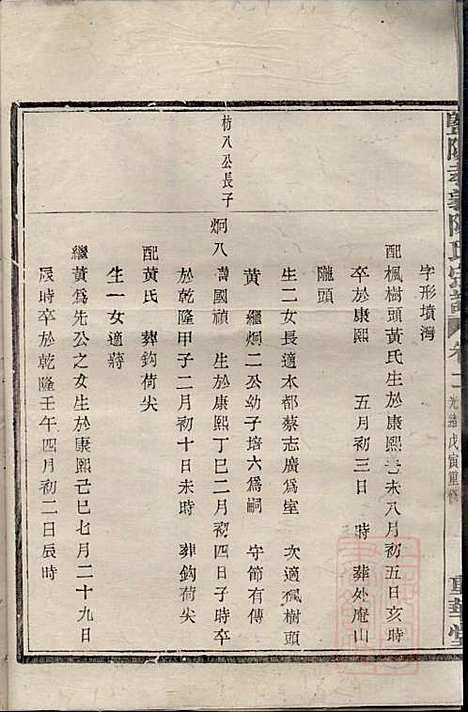 暨陽孝義陳氏宗譜 卷二 光緒戊寅重修
字形墳灣
配楓樹頭黃氏生於康熙己未八月初五日亥時
卒於康熙 五月初三日 時 葬处庵山
隴頭
生二女長適水都蔡志廣爲室 次適楓樹頭
黃 繼炯二公幼子培六爲嗣 守節有傳
枋八公長子
炯八 諱國禎 生於康熙丁巳二月初四日子時卒
於乾隆甲子二月初十日未時 葬鈎荷尖
配黃氏 葬鈎荷尖
生一女適蔣
繼黃爲先公之女生於康熙己巳七月二十九日
辰時卒於乾隆壬午四月初二日辰時